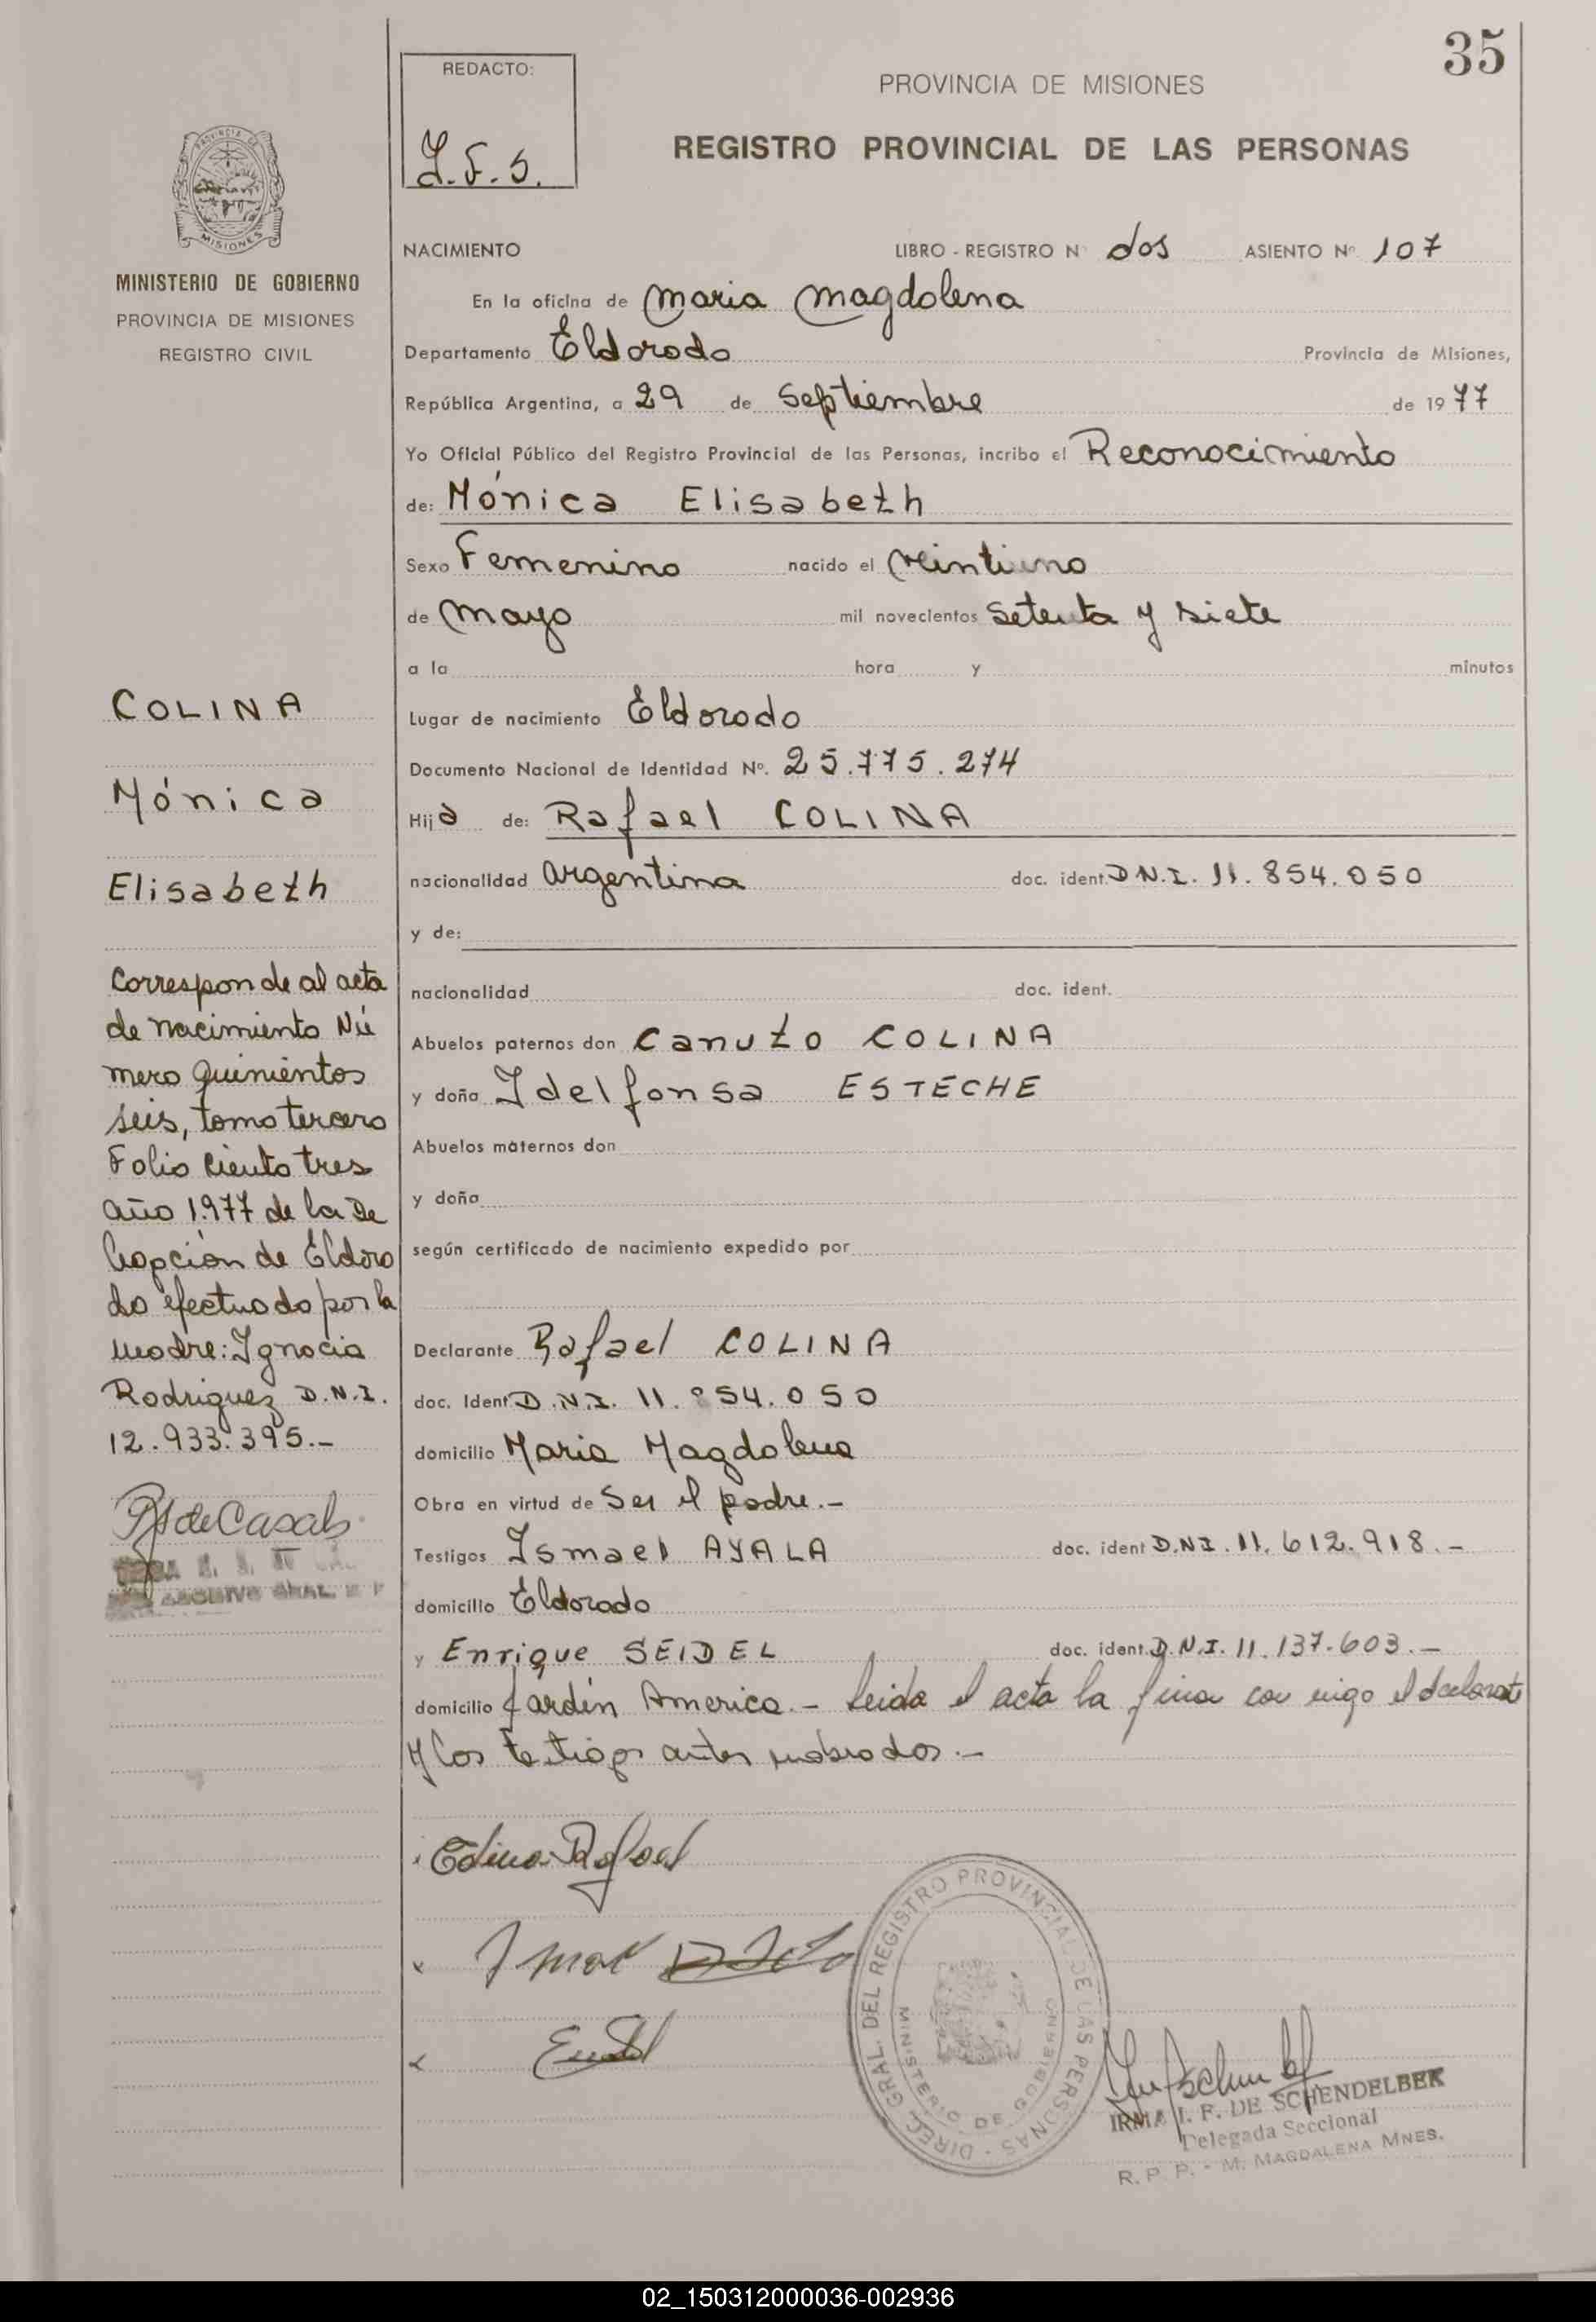 35
REDACTO:
I.F.S.
PROVINCIA DE MISIONES
REGISTRO PROVINCIAL DE LAS PERSONAS
PROVINCIA DE
MISIONES
MINISTERIO DE GOBIERNO
PROVINCIA DE MISIONES
REGISTRO CIVIL
NACIMIENTO LIBRO - REGISTRO N° dos ASIENTO N° 107
En la oficina de Maria Magdalena
Departamento Eldorado Provincia de Misiones,
República Argentina, a 29 de Septiembre de 1977
Yo Oficial Público del Registro Provincial de las Personas, incribo el Reconocimiento
de: Mónica Elisabeth
Sexo Femenino nacido el veintiuno
de Mayo mil novecientos setenta y siete
a la hora y minutos
Lugar de nacimiento Eldorado
Documento Nacional de Identidad N°. 25.775.274
Hija de: Rafael COLINA
nacionalidad Argentina doc. ident. D.N.I. 11.854.050
y de:
nacionalidad doc. ident.
Abuelos paternos don Canuto COLINA
y doña Idelfonsa ESTECHE
Abuelos maternos don
y doña
según certificado de nacimiento expedido por
Declarante Rafael COLINA
doc. Ident D.N.I. 11.854.050
domicilio Maria Magdalena
Obra en virtud de Ser el padre.-
Testigos Ismael AYALA doc. ident D.N.I. 11.612.918.-
domicilio Eldorado
y Enrique SEIDEL doc. ident. D.N.I. 11.137.603.-
domicilio Jardín America.- Leida el acta la firma con migo el declarante
y los testigos antes nombrados.-
COLINA
Mónica
Elisabeth
Corresponde al acta
de nacimiento Nú
mero Quinientos
seis, tomo tercero
Folio ciento tres
año 1.977 de la De
legación de Eldora
do efectuado por la
madre: Ignacia
Rodriguez D.N.I.
12.933.395.-
de Casals
ARCHIVO GRAL.
Colina Rafael
DIREC. GRAL. DEL REGISTRO PROVINCIAL DE LAS PERSONAS
MINISTERIO DE GOBIERNO
IRMA I. F. DE SCHENDELBEK
Delegada Seccional
R. P. P. - M. MAGDALENA MNES.
02_150312000036-002936